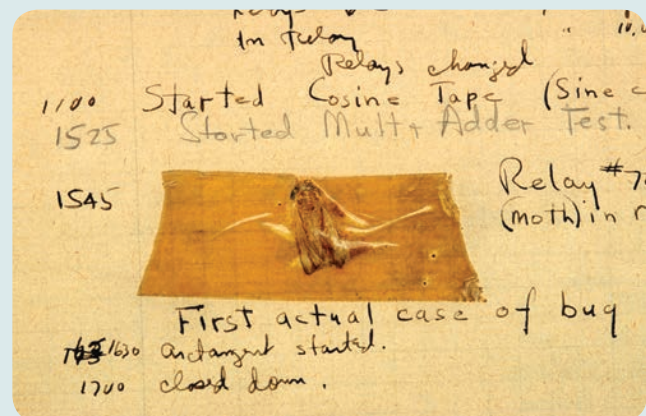 in Relay
Relays changed
1100 Started Cosine Tape (Sine c
1525 Started Mult + Adder Test.
1545 Relay #70
(moth) in r
First actual case of bug
1630 arctangent started.
1700 closed down.